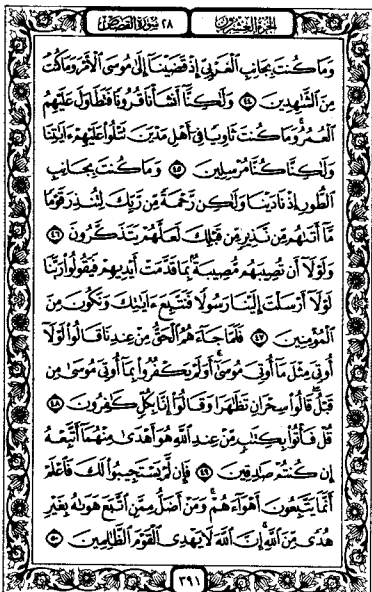 الجزء العشرون ٢٨ سورة القصص
وَمَا كُنتَ بِجَانِبِ ٱلْغَرْبِيِّ إِذْ قَضَيْنَآ إِلَىٰ مُوسَى ٱلْأَمْرَ وَمَا كُنتَ
مِنَ ٱلشَّٰهِدِينَ ٤٤ وَلَٰكِنَّآ أَنشَأْنَا قُرُونًا فَتَطَاوَلَ عَلَيْهِمُ
ٱلْعُمُرُ وَمَا كُنتَ ثَاوِيًا فِىٓ أَهْلِ مَدْيَنَ تَتْلُوا۟ عَلَيْهِمْ ءَايَٰتِنَا
وَلَٰكِنَّا كُنَّا مُرْسِلِينَ ٤٥ وَمَا كُنتَ بِجَانِبِ
ٱلطُّورِ إِذْ نَادَيْنَا وَلَٰكِن رَّحْمَةً مِّن رَّبِّكَ لِتُنذِرَ قَوْمًا
مَّآ أَتَىٰهُم مِّن نَّذِيرٍ مِّن قَبْلِكَ لَعَلَّهُمْ يَتَذَكَّرُونَ ٤٦
وَلَوْلَآ أَن تُصِيبَهُم مُّصِيبَةٌۢ بِمَا قَدَّمَتْ أَيْدِيهِمْ فَيَقُولُوا۟ رَبَّنَا
لَوْلَآ أَرْسَلْتَ إِلَيْنَا رَسُولًا فَنَتَّبِعَ ءَايَٰتِكَ وَنَكُونَ مِنَ
ٱلْمُؤْمِنِينَ ٤٧ فَلَمَّا جَآءَهُمُ ٱلْحَقُّ مِنْ عِندِنَا قَالُوا۟ لَوْلَآ
أُوتِىَ مِثْلَ مَآ أُوتِىَ مُوسَىٰٓ أَوَلَمْ يَكْفُرُوا۟ بِمَآ أُوتِىَ مُوسَىٰ مِن
قَبْلُ قَالُوا۟ سِحْرَانِ تَظَٰهَرَا وَقَالُوٓا۟ إِنَّا بِكُلٍّ كَٰفِرُونَ ٤٨
قُلْ فَأْتُوا۟ بِكِتَٰبٍ مِّنْ عِندِ ٱللَّهِ هُوَ أَهْدَىٰ مِنْهُمَآ أَتَّبِعْهُ
إِن كُنتُمْ صَٰدِقِينَ ٤٩ فَإِن لَّمْ يَسْتَجِيبُوا۟ لَكَ فَٱعْلَمْ
أَنَّمَا يَتَّبِعُونَ أَهْوَآءَهُمْ وَمَنْ أَضَلُّ مِمَّنِ ٱتَّبَعَ هَوَىٰهُ بِغَيْرِ
هُدًى مِّنَ ٱللَّهِ إِنَّ ٱللَّهَ لَا يَهْدِى ٱلْقَوْمَ ٱلظَّٰلِمِينَ ٥٠
٣٩١